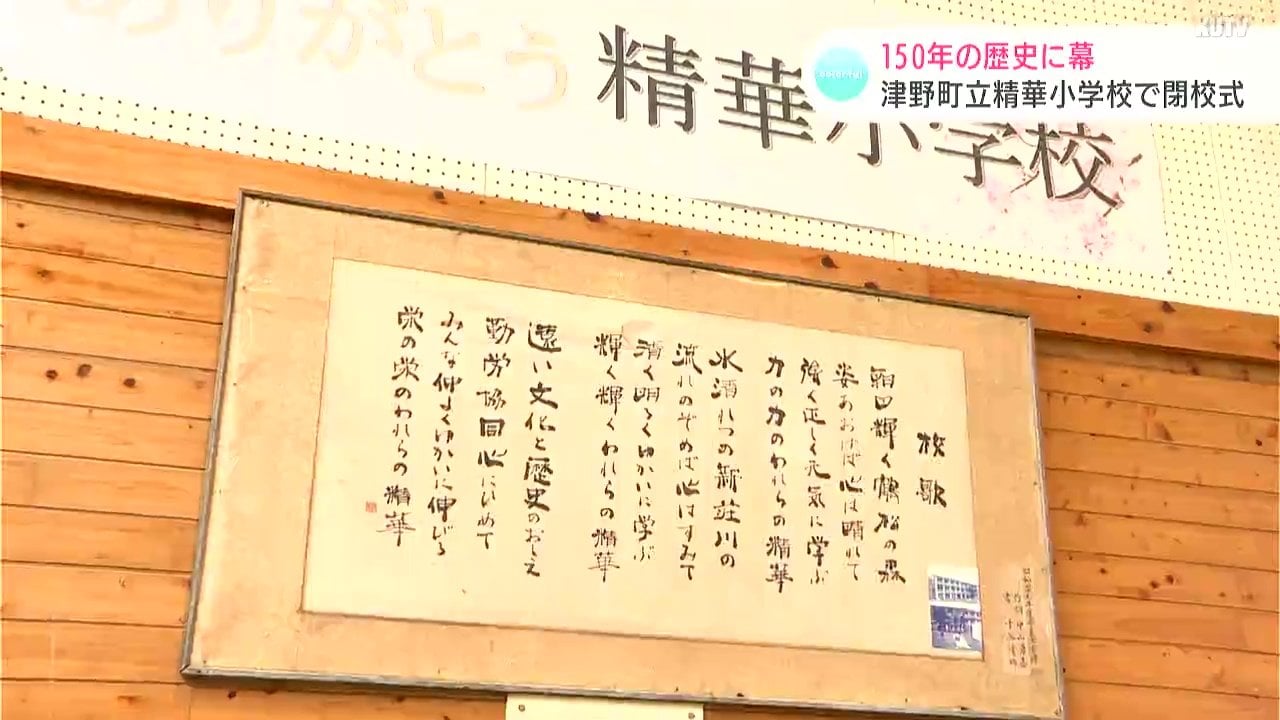 KUTV
150年の歴史に幕
津野町立精華小学校で閉校式
ありがとう 精華小学校
校歌
朝日輝く鶴松の森
姿あおげば心は晴れて
強く正しく元気に学ぶ
力の力のわれらの精華
水清れつの新荘川の
流れのぞめば心はすみて
清く明るくゆかいに学ぶ
輝く輝くわれらの精華
遠い文化と歴史のおしえ
勤労協同心にひめて
みんな仲よくゆかいに伸びる
栄の栄のわれらの精華